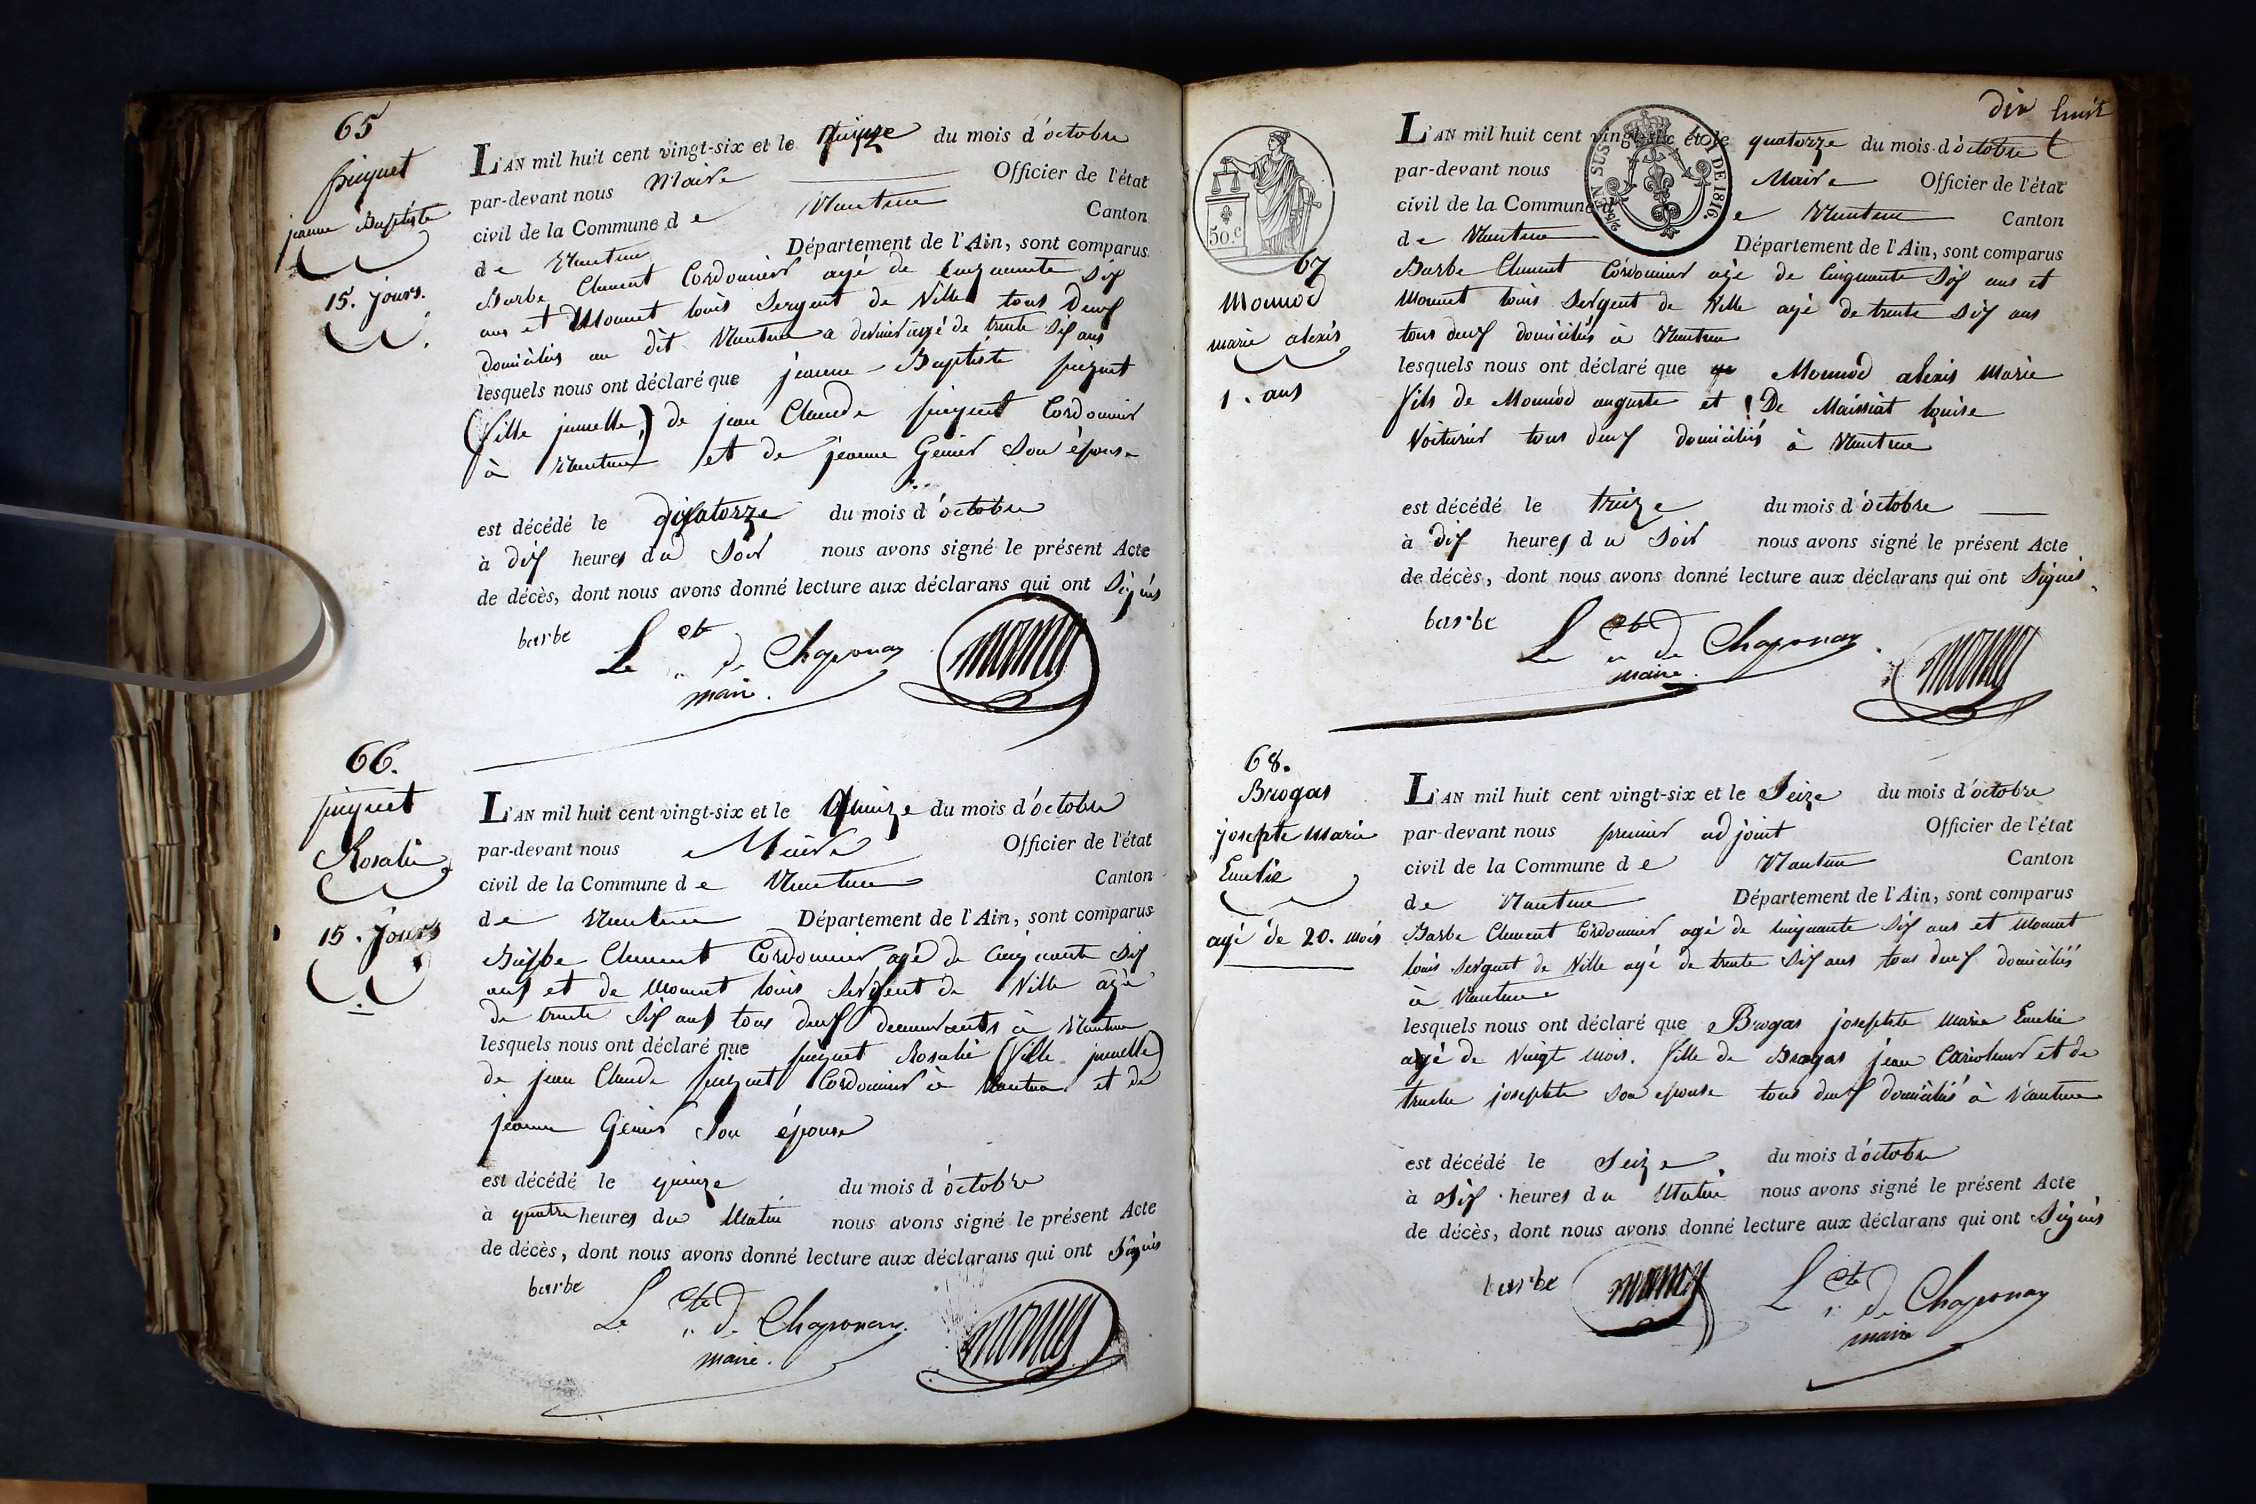 65
jeanne Baptiste
15. Jours.
L'AN mil huit cent vingt-six et le quinze du mois d'octobre
par-devant nous Maire Officier de l'état
civil de la Commune de Nantua Canton
de Nantua Département de l'Ain, sont comparus
Barbe Clement Cordonnier agé de cinquante six
ans et Monnet louis Sergent de Ville tous deux
domiciliés au dit Nantua a dernier agé de trente six ans
lesquels nous ont déclaré que jeanne Baptiste
(fille jumelle) de jean Claude Cordonnier
à Nantua et de jeanne son épouse
est décédé le quatorze du mois d'octobre
à dix heures du Soir nous avons signé le présent Acte
de décès, dont nous avons donné lecture aux déclarans qui ont Signés
barbe Le Cte de Chaponay
maire.
66.
Rosalie
15. Jours
L'AN mil huit cent vingt-six et le Quinze du mois d'octobre
par-devant nous Maire Officier de l'état
civil de la Commune de Nantua Canton
de Nantua Département de l'Ain, sont comparus
Barbe Clement Cordonnier agé de cinquante six
ans et de Monnet louis Sergent de Ville agé
de trente six ans tous deux demeurants à Nantua
lesquels nous ont déclaré que Rosalie (fille jumelle)
de jean Claude Cordonnier à Nantua et de
jeanne son épouse
est décédé le quinze du mois d'octobre
à quatre heures du Matin nous avons signé le présent Acte
de décès, dont nous avons donné lecture aux déclarans qui ont Signés
barbe Le Cte de Chaponay.
maire.
dix huit
50.c
67
Mounod
marie alexis
1. ans
L'AN mil huit cent vingt-six et le quatorze du mois d'octobre
par-devant nous Maire Officier de l'état
civil de la Commune de Nantua Canton
de Nantua Département de l'Ain, sont comparus
Barbe Clement Cordonnier agé de cinquante six ans et
Monnet louis Sergent de Ville agé de trente six ans
tous deux domiciliés à Nantua
lesquels nous ont déclaré que Mounod alexis Marie
fils de Mounod auguste et De Maissiat louise
Voiturier tous deux domiciliés à Nantua
est décédé le treize du mois d'octobre
à dix heures du Soir nous avons signé le présent Acte
de décès, dont nous avons donné lecture aux déclarans qui ont Signés.
barbe Le Cte de Chaponay.
maire.
68.
Brogas
josephte Marie
Emelie
agé de 20. mois
L'AN mil huit cent vingt-six et le Seize du mois d'octobre
par-devant nous premier adjoint Officier de l'état
civil de la Commune de Nantua Canton
de Nantua Département de l'Ain, sont comparus
Barbe Clement Cordonnier agé de cinquante six ans et Monnet
louis Sergent de Ville agé de trente six ans tous deux domiciliés
à Nantua
lesquels nous ont déclaré que Brogas josephte Marie Emelie
agé de vingt mois. fille de Brogas jean et de
josephte son epouse tous deux domiciliés à Nantua
est décédé le Seize du mois d'octobre
à Six heures du Matin nous avons signé le présent Acte
de décès, dont nous avons donné lecture aux déclarans qui ont Signés
barbe Le Cte de Chaponay
maire